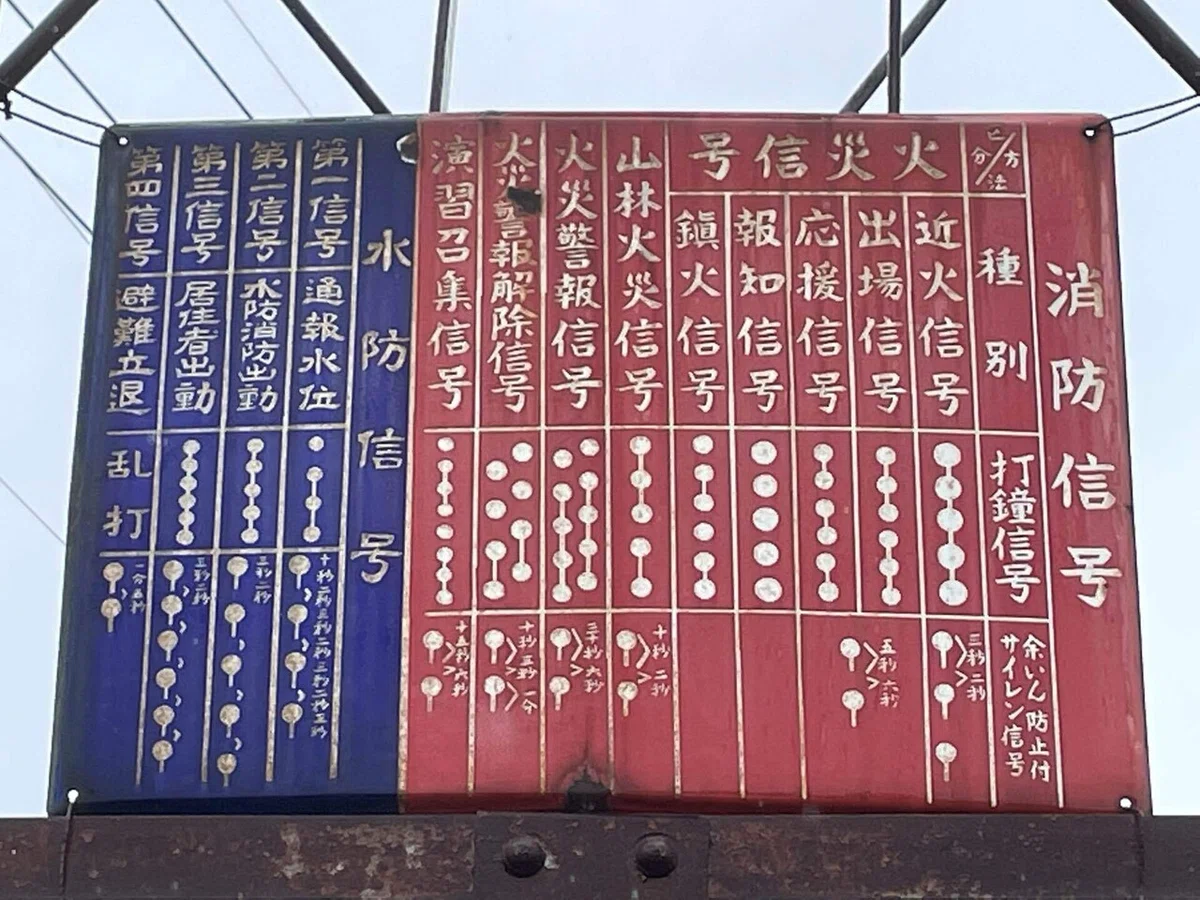 消防信号
方法
区分
種別
打鐘信号
余いん防止付
サイレン信号
火災信号
近火信号
三秒
二秒
出場信号
応援信号
五秒
六秒
報知信号
鎮火信号
山林火災信号
十秒
二秒
火災警報信号
三十秒
六秒
火災警報解除信号
十秒
三秒
一分
演習召集信号
十五秒
六秒
水防信号
第一信号
通報水位
十秒二秒三秒二秒三秒二秒三秒
第二信号
水防消防出動
三秒二秒
第三信号
居住者出動
三秒二秒
第四信号
避難立退
乱打
一分五秒